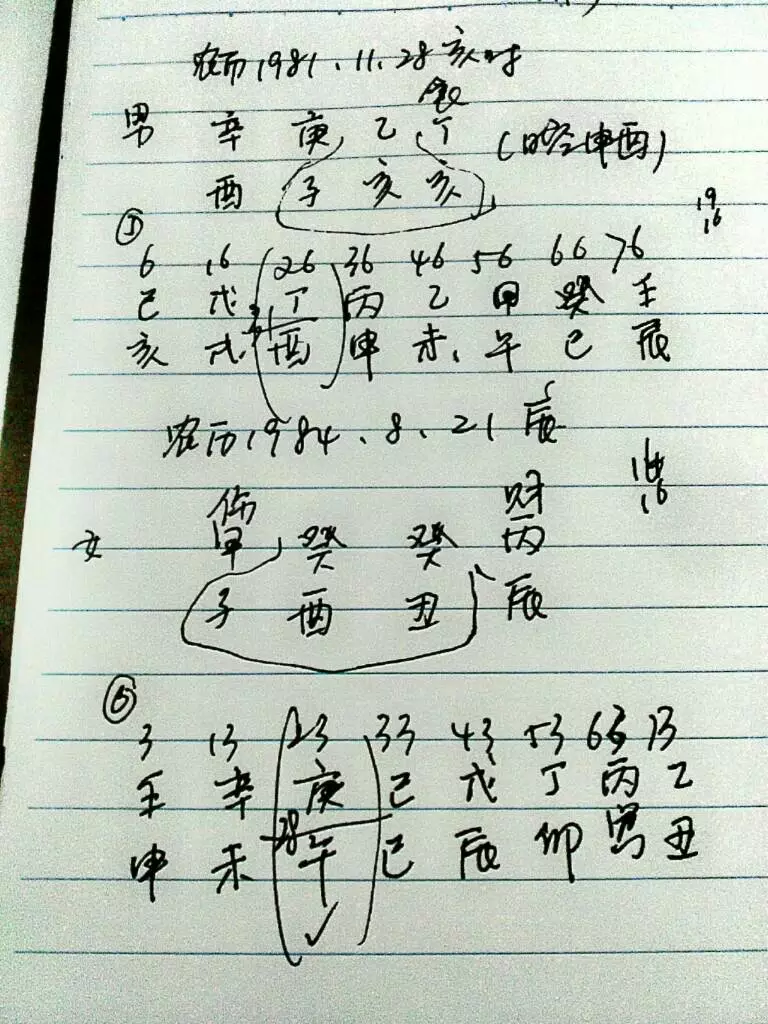 农历1981、11、28亥时
食
男 辛 庚 乙 丁 (空申酉)
酉 子 亥 亥
19
16
①
6 16 26 36 46 56 66 76
己 戊 丁 丙 乙 甲 癸 壬
亥 戌 酉 申 未 午 巳 辰
农历1984、8、21辰
16
伤 财
女 甲 癸 癸 丙
子 酉 丑 辰
⑥
3 13 23 33 43 53 63 73
壬 辛 庚 己 戊 丁 丙 乙
申 未 28 午 巳 辰 卯 寅 丑